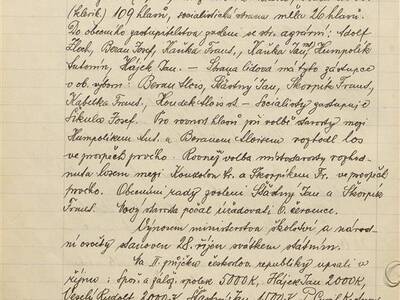 (klerik.) 109 hlasů, socialistická strana měla 26 hlasů.
Do obecního zastupitelstva zvoleni ze str. agrární: Adolf
Floch, Beran Josef, Kaňka Frant., Kaňka Humpolík
Antonín, Hájek Jan. — Strana lidová má tyto zástupce
v ob. výboru: Beran Alois, Šťastný Jan, Škorpík Frant.,
Kabelka Frant., Koudek Alois st. — Socialisty zastupuje
Sikula Josef. Pro rovnost hlasů při volbě starosty mezi
Humpolíkem Ant. a Beranem Aloisem rozhodl los
ve prospěch prvého. Rovněž volba místostarosty rozhod-
nuta losem mezi Fr. a Škorpíkem Fr. ve prospěch
prvého. Obecními rady zvoleni Šťastný Jan a Škorpík
Frant. Nový starosta počal úřadovati 6. července.
Výnosem ministerstva školství a národ-
ní osvěty stanoven 28. říjen svátkem státním.
Na II. půjčku českoslov. republiky upsali v
říjnu: Spoř. a zálož. spolek 5000 K, Hájek Jan 2000 K,
Veselý Rudolf 2000 K, Šťastný Jan 1000 K,